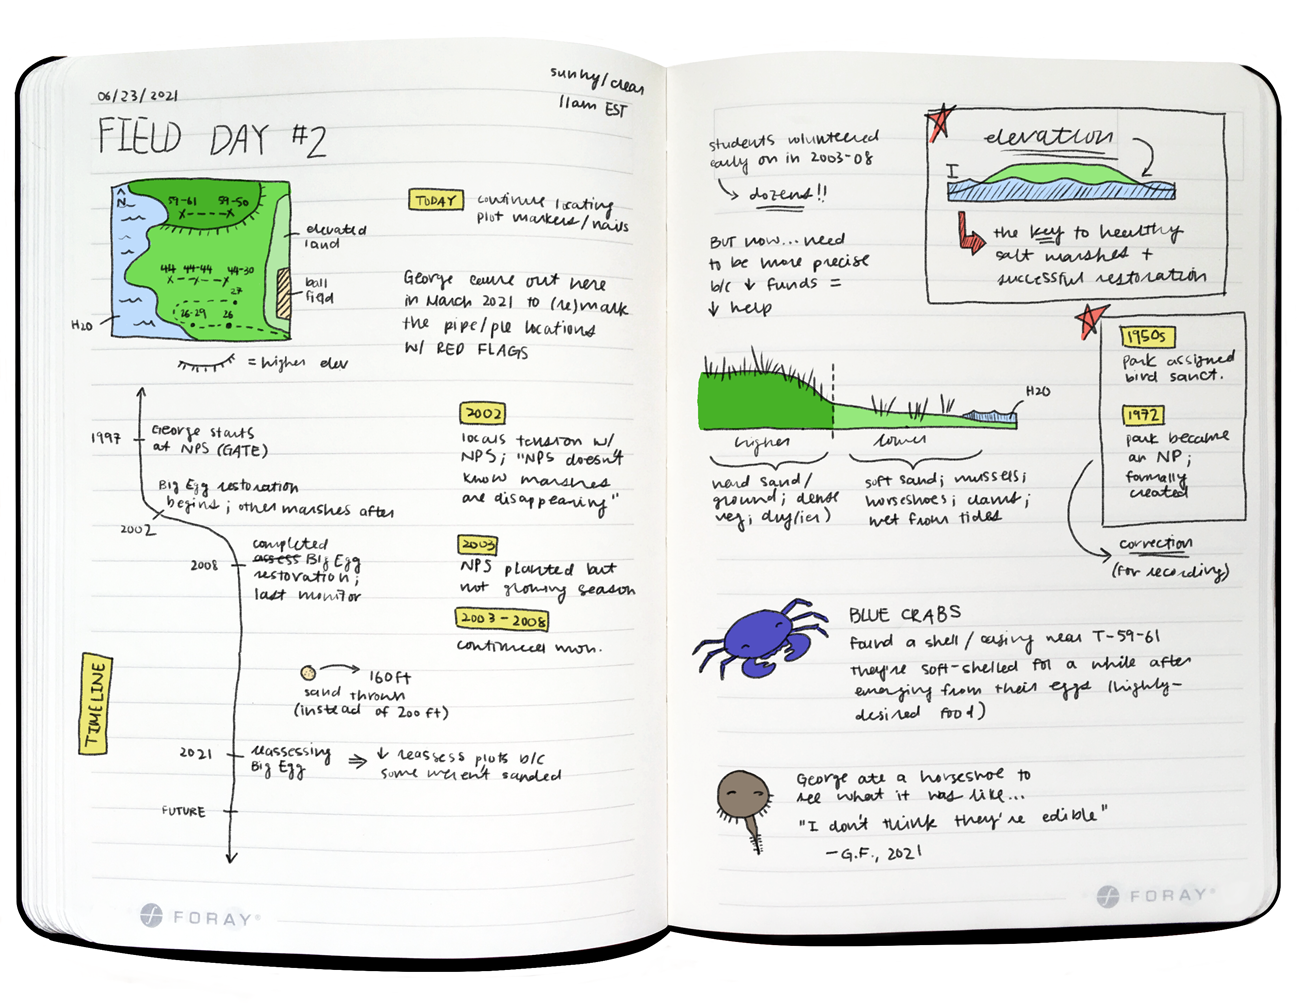 06/23/2021
sunny/clear
11am EST
FIELD DAY #2
N
59-61
59-50
44
44-44
44-30
27
26-29
26
H2O
elevated
land
ball
field
= higher elev
TODAY
continue locating
plot markers/nails
George came out here
in March 2021 to (re)mark
the pipe/ple locations
w/ RED FLAGS
TIMELINE
1997
George starts
at NPS (GATE)
Big Egg restoration
begins; other marshes after
2002
2008
completed
assess Big Egg
restoration;
last monitor
160ft
sand thrown
(instead of 200 ft)
2021
reassessing
Big Egg
⇒ ↓ reassess plots b/c
some weren't sanded
FUTURE
2002
locals tension w/
NPS; "NPS doesn't
know marshes
are disappearing"
2003
NPS planted but
not growing season
2003-2008
continued mon.
FORAY
students volunteered
early on in 2003-08
dozens!!
BUT now... need
to be more precise
b/c ↓ funds =
↓ help
elevation
I
the key to healthy
salt marshes +
successful restoration
1950s
park assigned
bird sanct.
1972
park became
an NP;
formally
created
correction
(for recording)
H2O
higher
lower
hard sand/
ground; dense
veg; dry(ier)
soft sand; mussels;
horseshoes; clams;
wet from tides
BLUE CRABS
Found a shell/casing near T-59-61
they're soft-shelled for a while after
emerging from their eggs (highly-
desired food)
George ate a horseshoe to
see what it was like...
"I don't think they're edible"
-G.F., 2021
FORAY